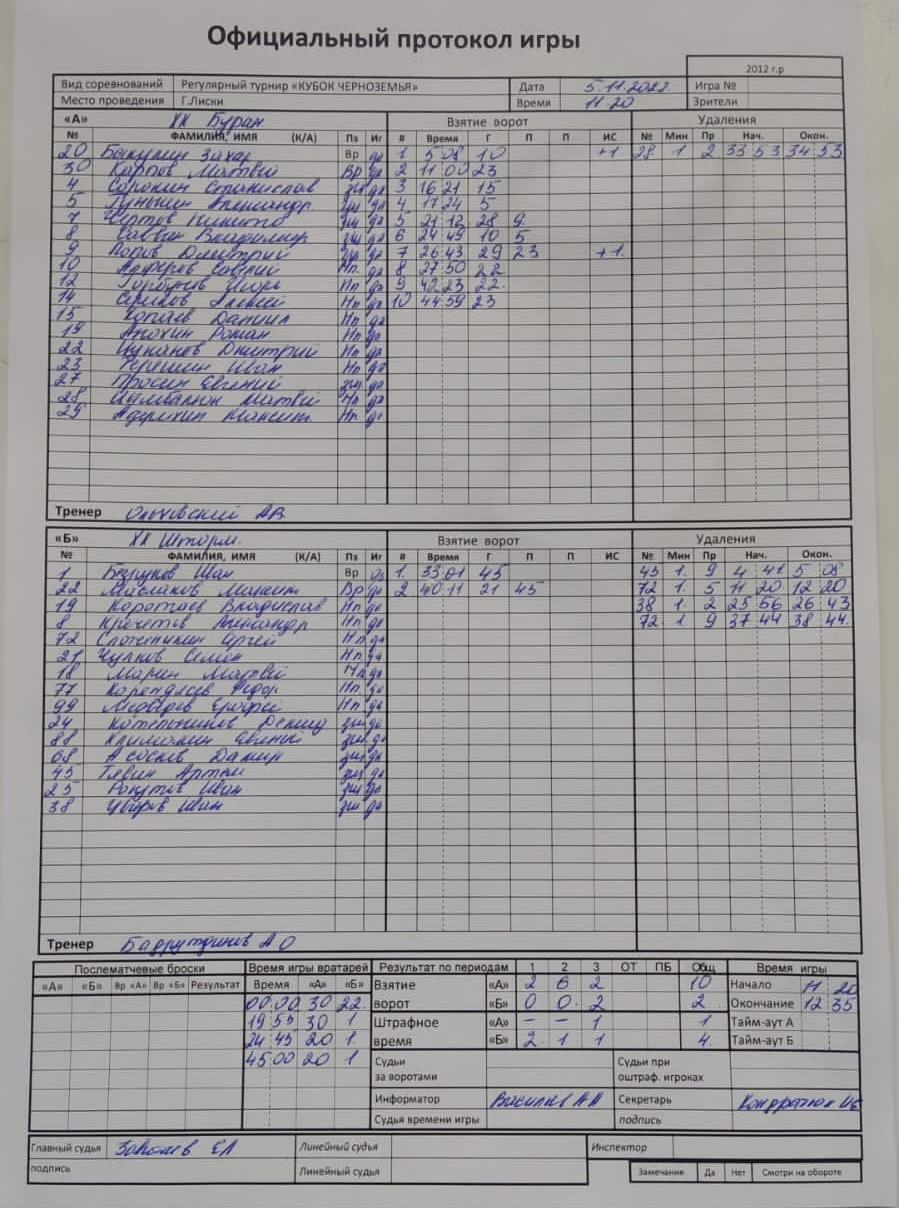 Официальный протокол игры
2012 г.р
Вид соревнований Регулярный турнир «КУБОК ЧЕРНОЗЕМЬЯ» Дата 5.11.2022. Игра №
Место проведения Г.Лиски Время 11.20 Зрители
«А» ХК Буран Взятие ворот Удаления
№ ФАМИЛИЯ, ИМЯ (К/А) Пз Иг # Время Г П П ИС № Мин Пр Нач. Окон.
20 Захар Вр да 1 5 08 10 +1 28 1 2 33 53 34 53
30 Карпов Матвей Вр да 2 11 00 23
4 Сорокин Станислав зщ да 3 16 21 15
5 Александр зщ да 4 17 24 5
7 Чертов Никита зщ да 5 21 12 28 9
8 Саввин Владимир зщ да 6 24 49 10 5
9 Попов Дмитрий да 7 26 43 29 23 +1
10 Нп да 8 27 50 22
12 Горбунов Игорь Нп да 9 42 23 22
14 Алексей Нп да 10 44 59 23
15 Копаев Даниил Нп да
19 Анохин Роман Нп да
22 Цуканов Дмитрий Нп да
23 Терёшин Иван Нп да
27 Просин Евгений зщ да
28 Матвей Нп да
29 Максим Нп да
Тренер Ольховский АВ
«Б» ХК Шторм Взятие ворот Удаления
№ ФАМИЛИЯ, ИМЯ (К/А) Пз Иг # Время Г П П ИС № Мин Пр Нач. Окон.
1 Безруков Иван Вр да 1 33 01 45 45 1 9 4 41 5 08
22 Маслаков Максим Вр да 2 40 11 21 45 72 1 5 11 20 12 20
19 Коротаев Владислав Нп да 38 1 2 25 56 26 43
8 Кочетов Александр Нп да 72 1 9 37 44 38 44
72 Сергей Нп да
21 Чулков Семен Нп да
18 Марин Матвей Нп да
77 Федор Нп да
99 Медведев Ерофей Нп да
24 Котельников зщ да
88 Климошин Евгений зщ да
68 Асосков Дамир зщ да
45 Тявин Артем зщ да
25 Иван зщ да
38 Уваров Иван зщ да
Тренер Бадрутдинов А О
Послематчевые броски Время игры вратарей Результат по периодам 1 2 3 ОТ ПБ Общ Время игры
«А» «Б» Вр «А» Вр «Б» Результат Время «А» «Б» Взятие «А» 2 6 2 10 Начало 11 20
00 00 30 22 ворот «Б» 0 0 2 2 Окончание 12 35
19 55 30 1 Штрафное «А» – – 1 1 Тайм-аут А
24 45 20 1 время «Б» 2 1 1 4 Тайм-аут Б
45 00 20 1 Судьи Судьи при
за воротами оштраф. игроках
Информатор Василков АА Секретарь Кондратюк
Судья времени игры подпись
Главный судья ЕЛ Линейный судья Инспектор
подпись Линейный судья Замечание Да Нет Смотри на обороте